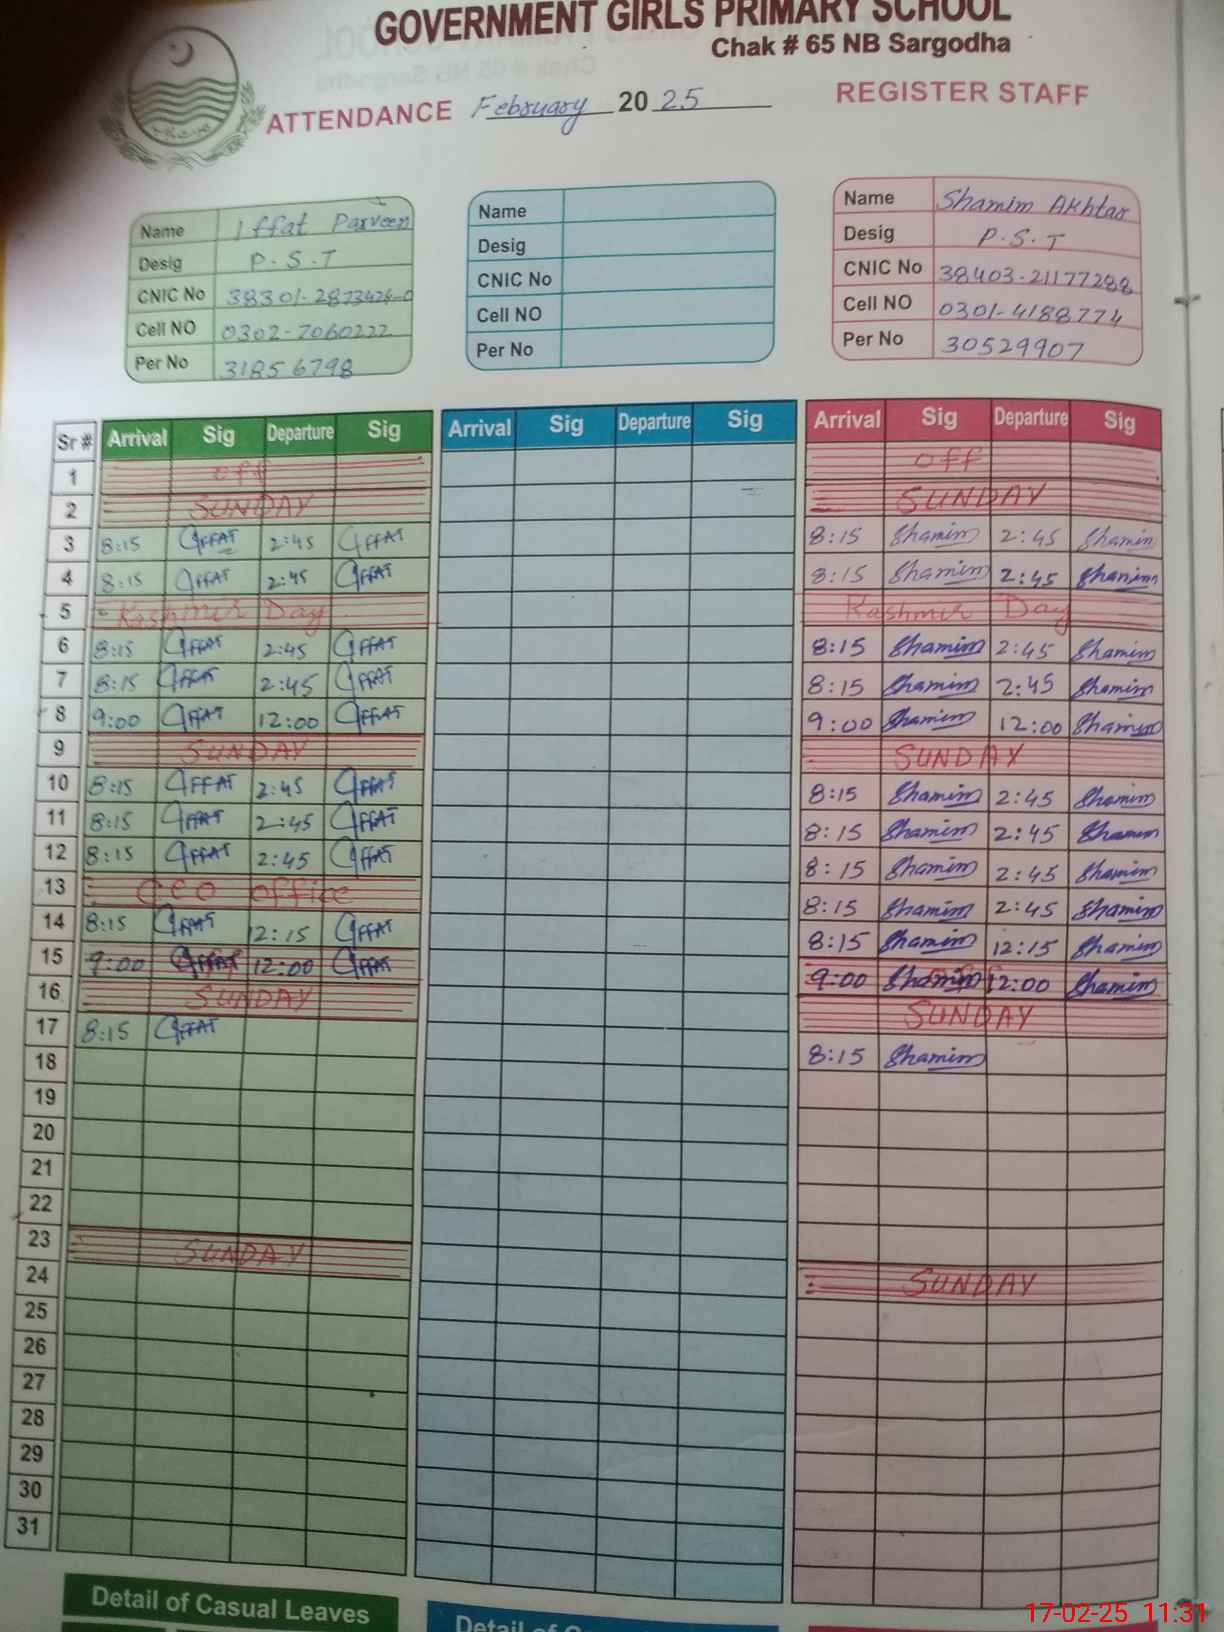 GOVERNMENT GIRLS PRIMARY SCHOOL
Chak # 65 NB Sargodha
ATTENDANCE February 2025 REGISTER STAFF
Name Iffat Parveen
Desig P.S.T
CNIC No 38301-2873426-0
Cell NO 0302-7060222
Per No 31856798
Name
Desig
CNIC No
Cell NO
Per No
Name Shamim Akhtar
Desig P.S.T
CNIC No 38403-21177288
Cell NO 0301-4188774
Per No 30529907
Sr # Arrival Sig Departure Sig Arrival Sig Departure Sig Arrival Sig Departure Sig
1 off off
2 SUNDAY SUNDAY
3 8:15 IFFAT 2:45 IFFAT 8:15 Shamim 2:45 Shamim
4 8:15 IFFAT 2:45 IFFAT 8:15 Shamim 2:45 Shamim
5 Kashmir Day Kashmir Day
6 8:15 IFFAT 2:45 IFFAT 8:15 Shamim 2:45 Shamim
7 8:15 IFFAT 2:45 IFFAT 8:15 Shamim 2:45 Shamim
8 9:00 IFFAT 12:00 IFFAT 9:00 Shamim 12:00 Shamim
9 SUNDAY SUNDAY
10 8:15 IFFAT 2:45 IFFAT 8:15 Shamim 2:45 Shamim
11 8:15 IFFAT 2:45 IFFAT 8:15 Shamim 2:45 Shamim
12 8:15 IFFAT 2:45 IFFAT 8:15 Shamim 2:45 Shamim
13 CEO office 8:15 Shamim 2:45 Shamim
14 8:15 IFFAT 12:15 IFFAT 8:15 Shamim 12:15 Shamim
15 9:00 IFFAT 12:00 IFFAT 9:00 Shamim 12:00 Shamim
16 SUNDAY SUNDAY
17 8:15 IFFAT 8:15 Shamim
18
19
20
21
22
23 SUNDAY SUNDAY
24
25
26
27
28
29
30
31
Detail of Casual Leaves
Detail of
17-02-25 11:31